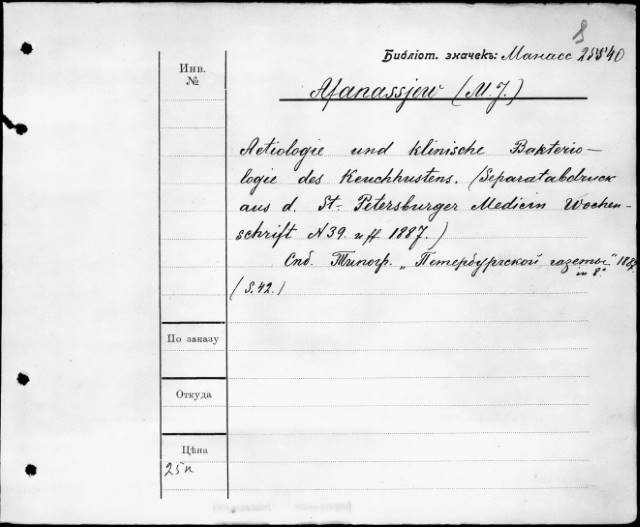 8
Библіот. значекъ: Манасс 25540
Инв.
№
Afanassjew (M. J.)
Aetiologie und klinische Bakterio-
logie des Keuchhustens. (Separatabdruck
aus d. St.- Petersburger Medicin Wochen-
schrift N 39. u ff 1887.)
Спб. Типогр. „Петербургской газеты" 1887
in 8°.
(S. 42.)
По заказу
Откуда
Цѣна
25 к